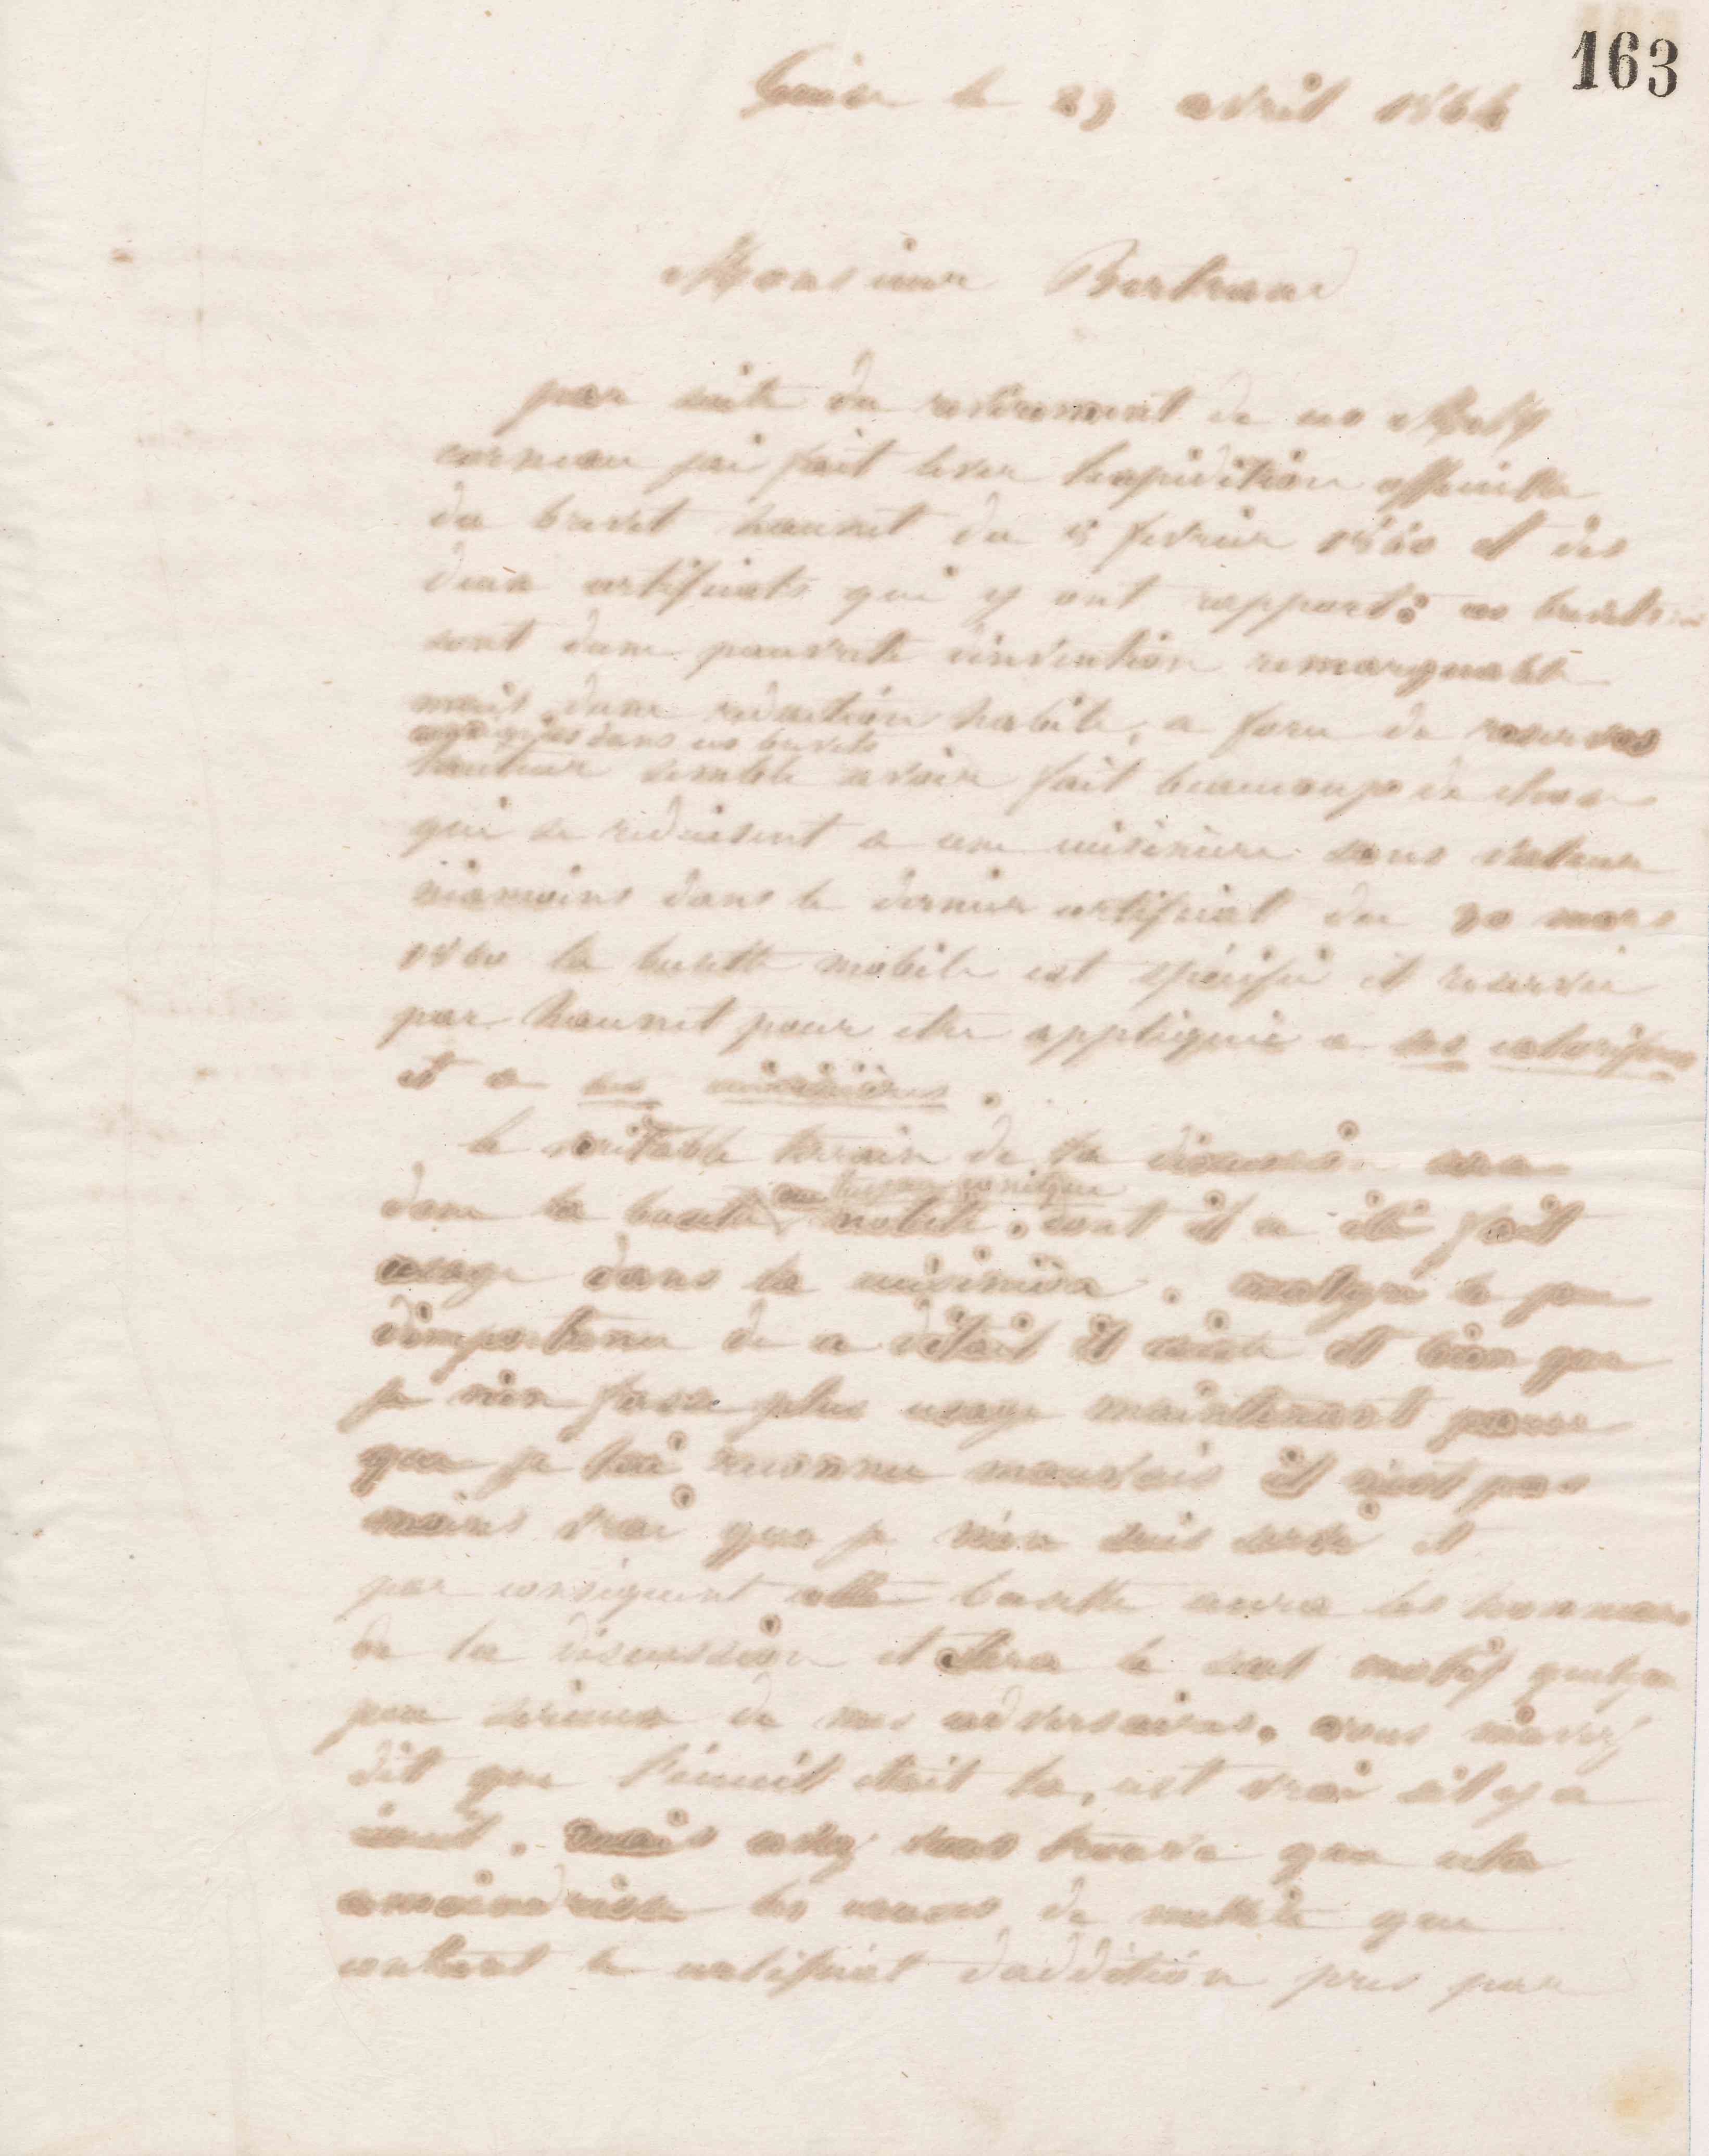 163
Guise le 29 avril 1864
Monsieur Bertrand
par suite du revirement de ces
corneau jai fait lever lexpédition officielle
du brevet haunet du 8 fevrier 1860 et des
deux certificats qui y ont rapport: ces brevets
sont dune pauvreté dinvention remarquable
mais dune rédaction habile, a force de reserves
dans ces brevets
lauteur semble avoir fait beaucoup de choses
qui se réduisent a une cuisinière sans valeur
néamoins dans le dernier certificat du 30 mars
1860 la busette mobile est spécifié et reservée
par haunet pour etre appliquée a ses calorifères
et a ses cuisinières.
le véritable terrain de la discussion sera
dans la busette ou tuyau conique mobile. dont il a été fait
usage dans la cuisinière. malgré le peu
dimportance de ce détail il existe et bien que
je nen fasse plus usage maintenant parce
que je lai reconnu mauvais il nest pas
moins vrai que je men suis servi et
par conséquent cette busette aura les honneurs
de la discussion et sera le seul motif quelque
peu sérieux de mes adversaires. vous mavez
dit que l'écueil était la, cest vrai sil y a
écueil. mais avez vous trouvé que cela
amoindrisse les causes de nullité que
contient le certificat daddition pris par